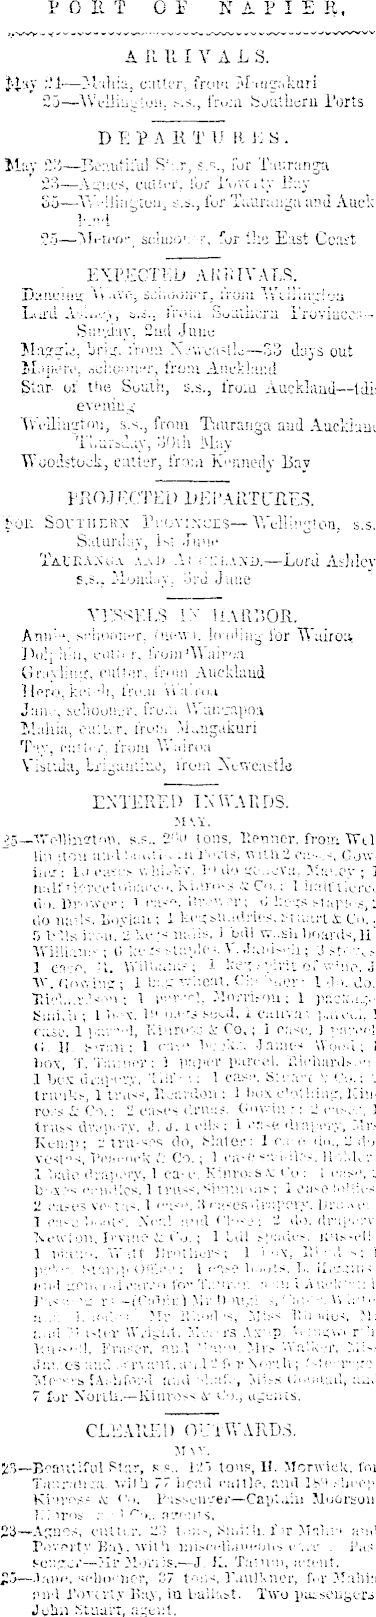 PORT OF NAPIER.
ARRIVALS.
May 24—Mahia, cutter, from Mangakuri
25—Wellington, s.s., from Southern Ports
DEPARTURES.
May 23—Beautiful Star, s.s., for Tauranga
23—Agnes, cutter, for Poverty Bay
35—Wellington, s.s., for Tauranga and Auck
land
25—Meteor, schooner, for the East Coast
EXPECTED ARRIVALS.
Dancing Wave, schooner, from Wellington
Lord Ashley, s.s., from Southern Provinces—
Sunday, 2nd June
Maggie, brig, from Newcastle—33 days out
Mapere, schooner, from Auckland
Star of the South, s.s., from Auckland—this
evening
Wellington, s.s., from Tauranga and Auckland
Thursday, 30th May
Woodstock, cutter, from Kennedy Bay
PROJECTED DEPARTURES.
FOR SOUTHERN PROVINCES—Wellington, s.s.
Saturday, 1st June
TAURANGA AND AUCKLAND.—Lord Ashley
s.s., Monday, 3rd June
VESSELS IN HARBOR.
Annie, schooner, (new), loading for Wairoa
Dolphin, cutter, from Wairoa
Grayling, cutter, from Auckland
Hero, ketch, from Wairoa
Jane, schooner, from Wangapoa
Mahia, cutter, from Mangakuri
Tay, cutter, from Wairoa
Vistula, brigantine, from Newcastle
ENTERED INWARDS.
MAY.
25—Wellington, s.s., 260 tons, Renner, from Wel
lington and Southern Ports, with 2 cases, Gow
ing; 10 cases whisky, 10 do geneva, Maney;
half tierce tobacco, Kinross & Co.; 1 half tierce
do, Brower; 1 case, Brower; 6 kegs staples, 2
do nails, Boylan; 1 keg sundries, Stuart & Co.
5 bdls iron, 2 kegs nails, 1 bdl wash boards, H
Williams; 6 kegs staples, V. Janisch; 3 stoves
1 case, R. Williams; 1 keg spirit of wine, J
W. Gowing; 1 bag wheat, 1 do. do.
Richardson; 1 parcel, Morrison; 1 package
Smith; 1 box, 19 bags seed, 1 canvas parcel, 1
case, 1 parcel, Kinross & Co.; 1 case, 1 parcel
G. H. Swan; 1 case books, James Wood; 1
box, T. Tanner; 1 paper parcel, Richardson
1 box drapery, Tiffen; 1 case, Stuart & Co.;
trunks, 1 truss, Reardon; 1 box clothing, Kin
ross & Co.; 2 cases drugs, Gowing; 2 cases, 1
truss drapery, J. J. Tells; 1 case drapery, Mrs
Kemp; 2 trusses do, Slater; 1 case do., 2 do
vestas, Peacock & Co.; 1 case saddles, Holder
1 bale drapery, 1 case, Kinross & Co; 1 case,
boxes candles, 1 truss, Simmons; 1 case
2 cases vestas, 1 case, 3 cases drapery,
1 case boots, Neal and Close; 2 do. drapery
Newton, Irvine & Co.; 1 bdl spades, Russell
1 piano, Watt Brothers; 1 box,
Stamp Office; 1 case boots, B. Higgins
and general cargo for Tauranga and Auckland
Passengers—(Cabin) Mr Douglas,
and Mr Rhodes, Miss Rhodes,
and Master Wright, Messrs
Russell, Fraser, and Mrs Walker,
James and servant, and 12 for North; (steerage
Messrs Ashford and Miss and
7 for North.—Kinross & Co., agents.
CLEARED OUTWARDS.
MAY.
23—Beautiful Star, s.s., 125 tons, H. Morwick, for
Tauranga, with 77 head cattle, and 189 sheep
Kinross & Co. Passenger—Captain Moorson
Kinross and Co., agents.
23—Agnes, cutter, 23 tons, Smith, for Mahia and
Poverty Bay, with miscellaneous cargo. Pas
senger—Mr Morris.—J. K. Tatton, agent.
25—Jane, schooner, 37 tons, Faulkner, for Mahia
and Poverty Bay, in ballast. Two passengers
John Stuart, agent.